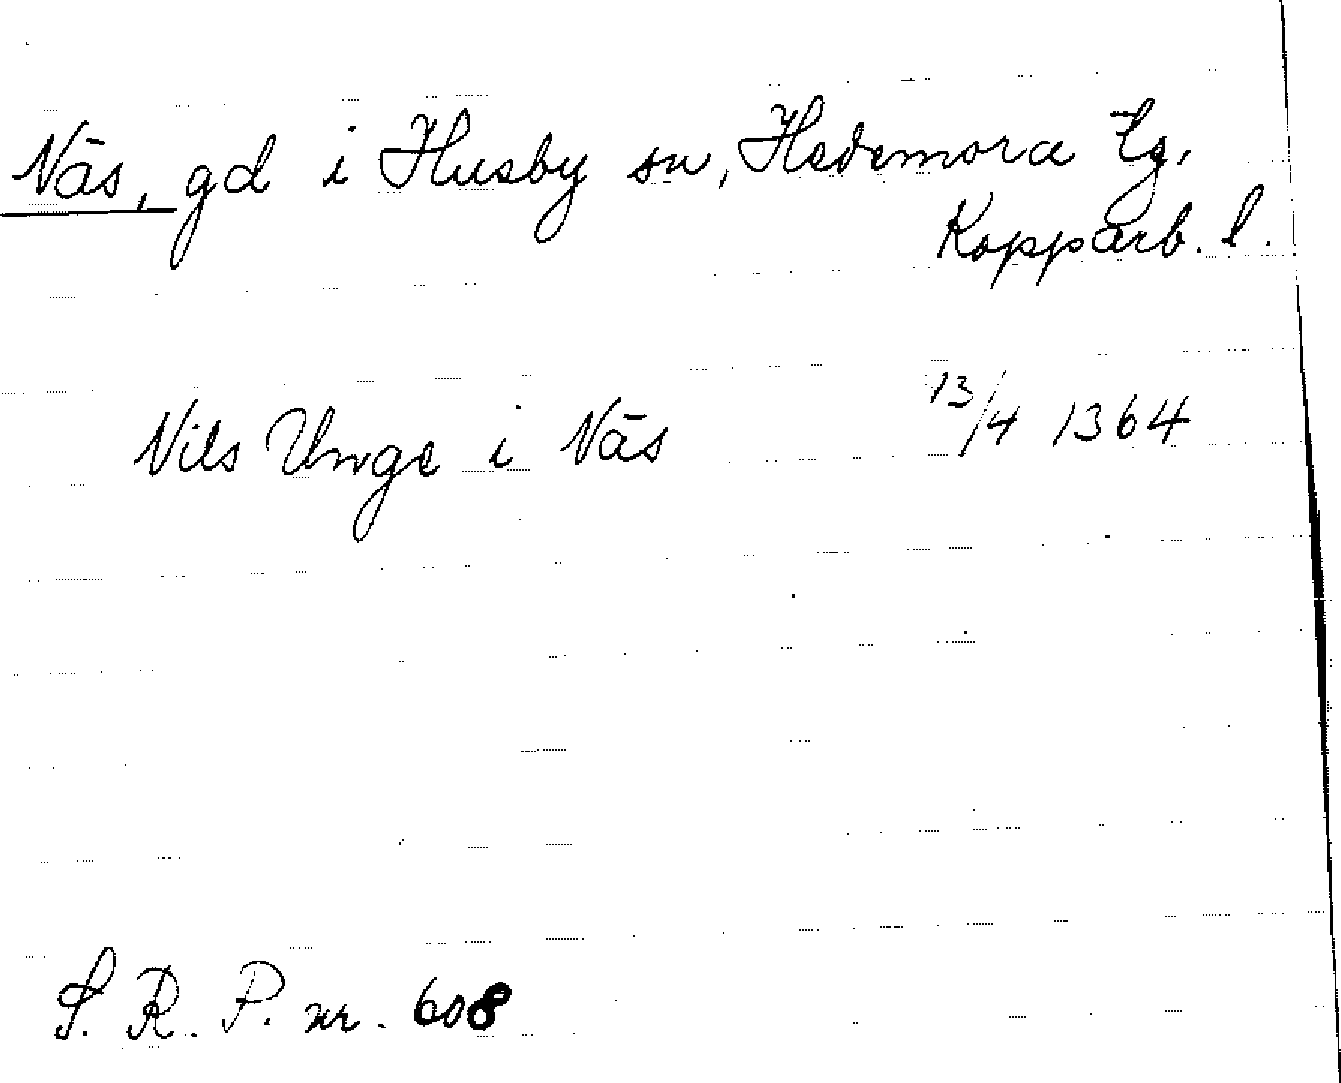 Näs, gd i Husby sn, Hedemora tg,
Kopparb. l.
Nils Unge i Näs 13/4 1364
S. R. P. nr. 608